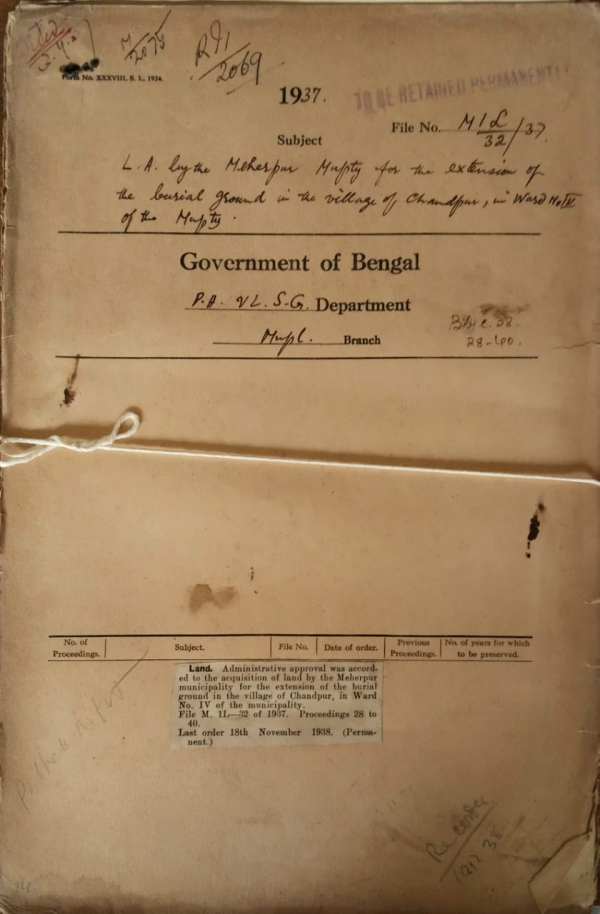 R I
2069
Form No. XXXVIII, S. I., 1934.
1937.
TO BE RETAINED PERMANENTLY
File No. M 1 L
32/37
Subject
L. A. by the Meherpur Mupty for the extension of
the burial ground in the village of Chandpur, in Ward No. IV
of the Mupty.
Government of Bengal
Department
Branch
28-40.
No. of Proceedings. Subject. File No. Date of order. Previous Proceedings. No. of years for which to be preserved.
Land. Administrative approval was accord-
ed to the acquisition of land by the Meherpur
municipality for the extension of the burial
ground in the village of Chandpur, in Ward
No. IV of the municipality.
File M. 1L—32 of 1937. Proceedings 28 to
40.
Last order 18th November 1938. (Perma-
nent.)